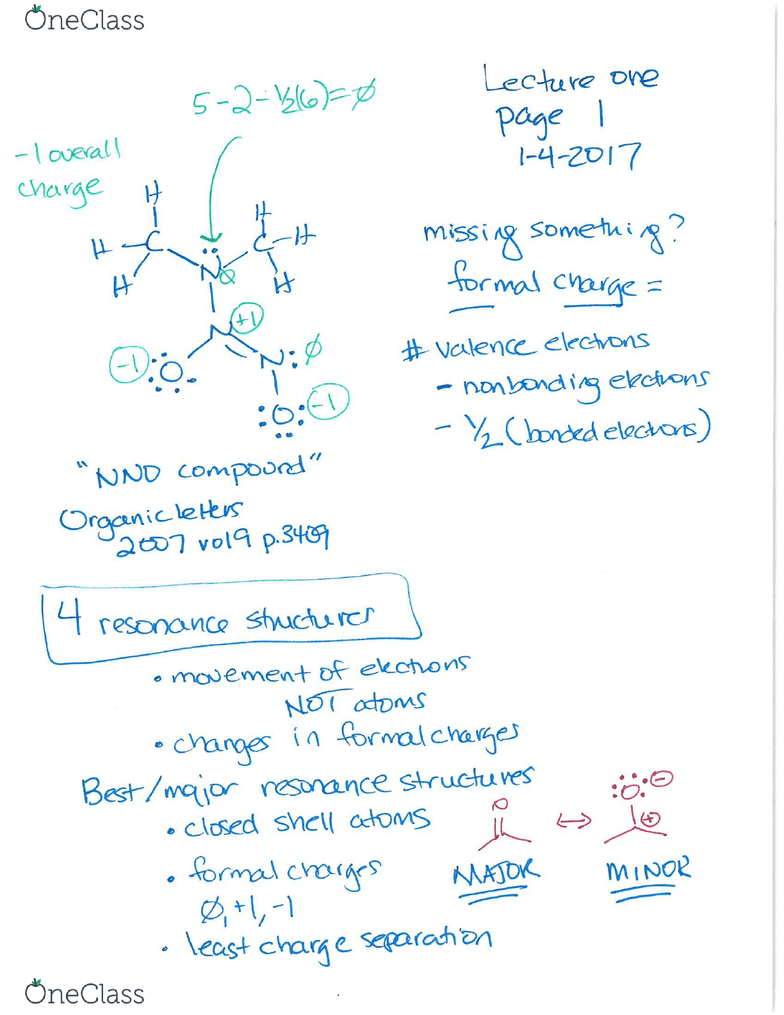 OneClass
Lecture one
page 1
1-4-2017
5-2-½(6)=∅
-1 overall
charge
H
H
H-C
C-H
H
N∅
H
N +1
-1 :O:
N: ∅
:O: -1
missing something?
formal charge =
# valence electrons
- nonbonding electrons
- ½ (bonded electrons)
"NNO compound"
Organic letters
2007 vol9 p.3409
4 resonance structures
• movement of electrons
NOT atoms
• changes in formal charges
Best/major resonance structures
• closed shell atoms
O
↔
:O: ⊖
⊕
MAJOR
MINOR
• formal charges
∅, +1, -1
• least charge separation
OneClass